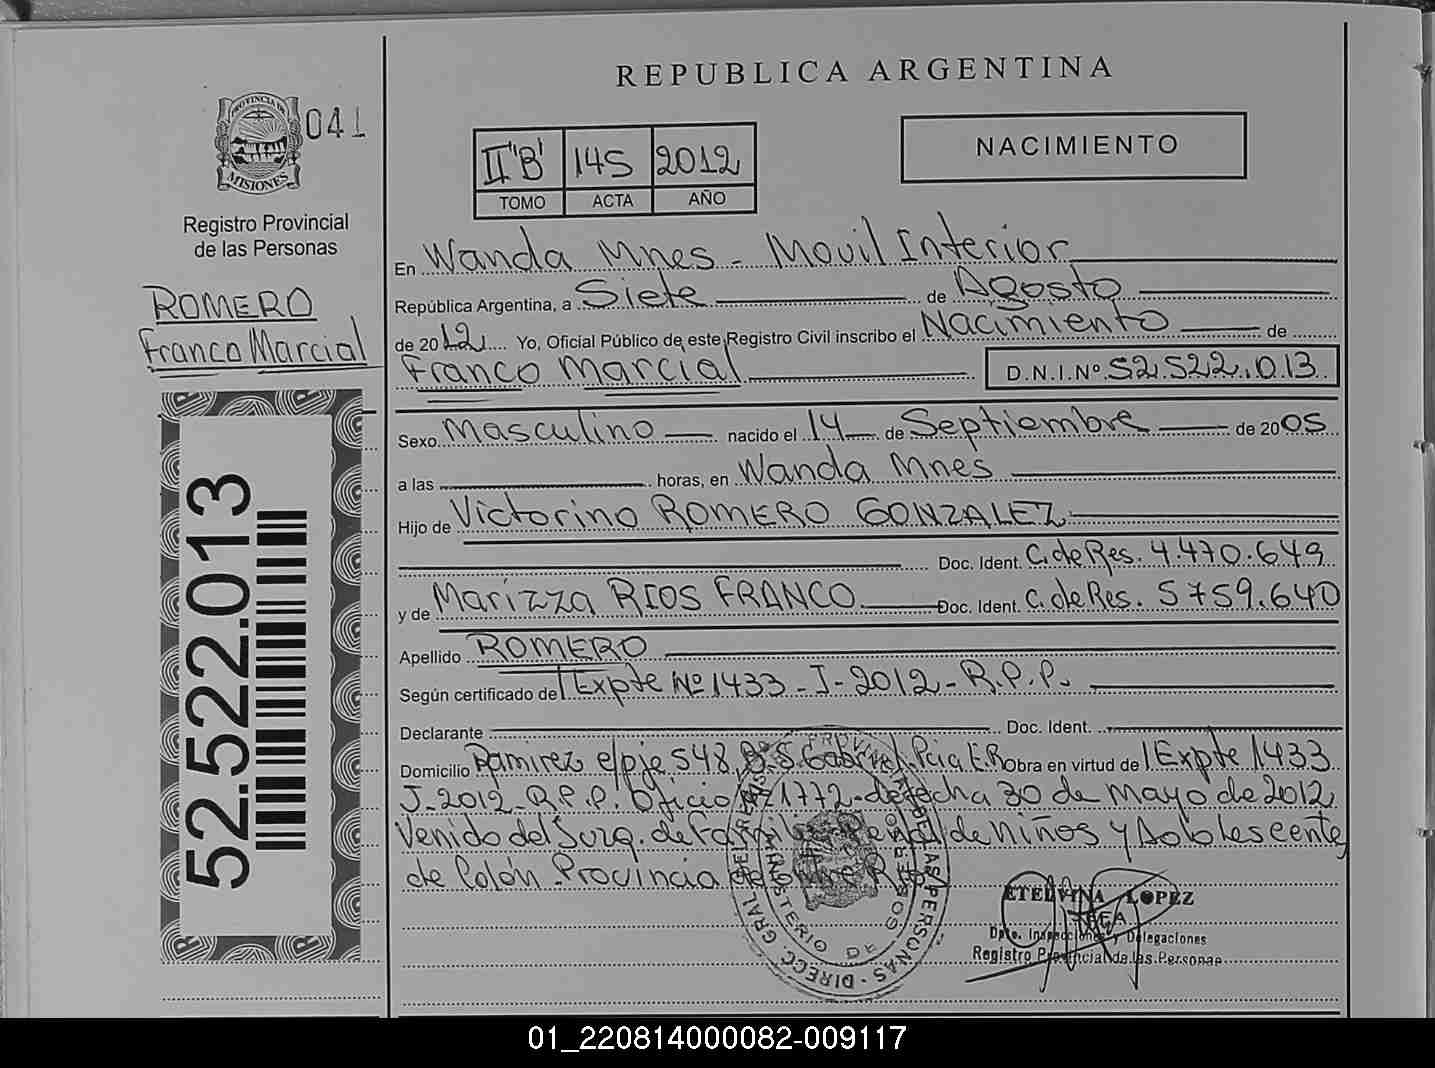 REPUBLICA ARGENTINA
PROVINCIA DE
MISIONES
041
Registro Provincial
de las Personas
ROMERO
Franco Marcial
52.522.013
II "B" 145 2012
TOMO ACTA AÑO
NACIMIENTO
En Wanda Mnes - Movil Interior
República Argentina, a Siete de Agosto
de 2012 Yo, Oficial Público de este Registro Civil inscribo el Nacimiento de
Franco Marcial D.N.I.Nº 52.522.013
Sexo Masculino nacido el 14 de Septiembre de 2005
a las horas, en Wanda Mnes
Hijo de Victorino ROMERO GONZALEZ
Doc. Ident. C. de Res. 4.470.649
y de Marizza RIOS FRANCO Doc. Ident. C. de Res. 5759.640
Apellido ROMERO
Según certificado de Expte Nº 1433 - J - 2012 - R.P.P.
Declarante Doc. Ident.
Domicilio Ramirez e/pje 548 B.S. Gabriel Pcia E.R Obra en virtud de Expte 1433
J-2012-R.P.P. Oficio 1772 - de fecha 30 de Mayo de 2012
Venido del Juzg. de Familia de niños y Adolescente,
de Colón Provincia de
ETELVINA LOPEZ
JEFA
Dpto. Inspecciones y Delegaciones
Registro Provincial de las Personas
DIRECC. GRAL DEL REGISTRO PROVINCIAL DE LAS PERSONAS
MINISTERIO DE GOBIERNO
01_220814000082-009117